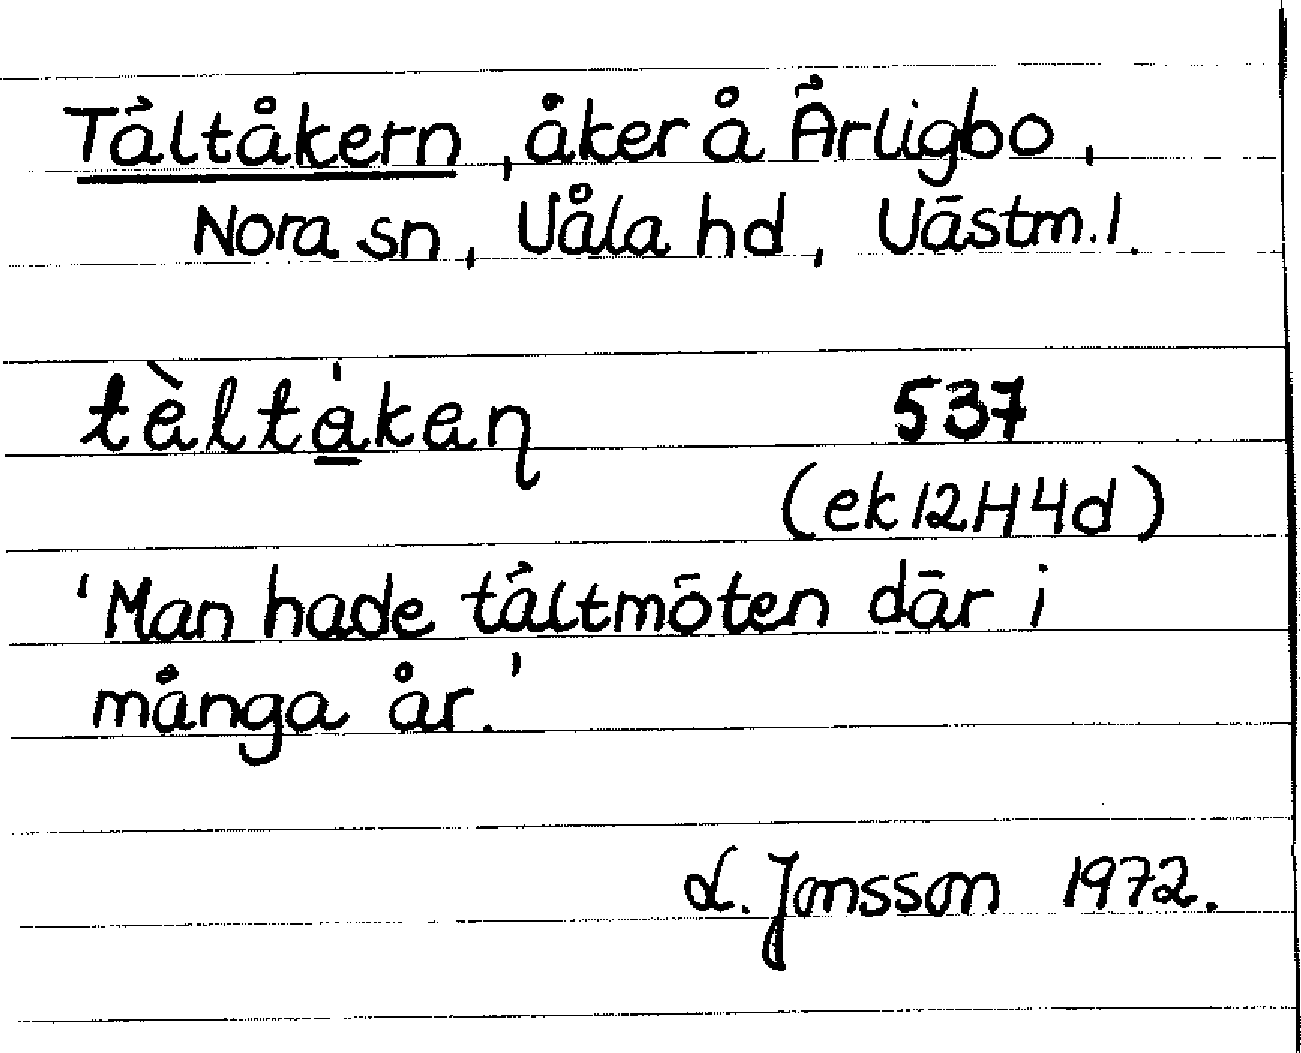 Tältåkern, åker å Ärligbo,
Nora sn, Våla hd, Västm. l.
tèltå̱keɳ 537
(ek 12H4d)
'Man hade tältmöten där i
många år.'
L. Jonsson 1972.